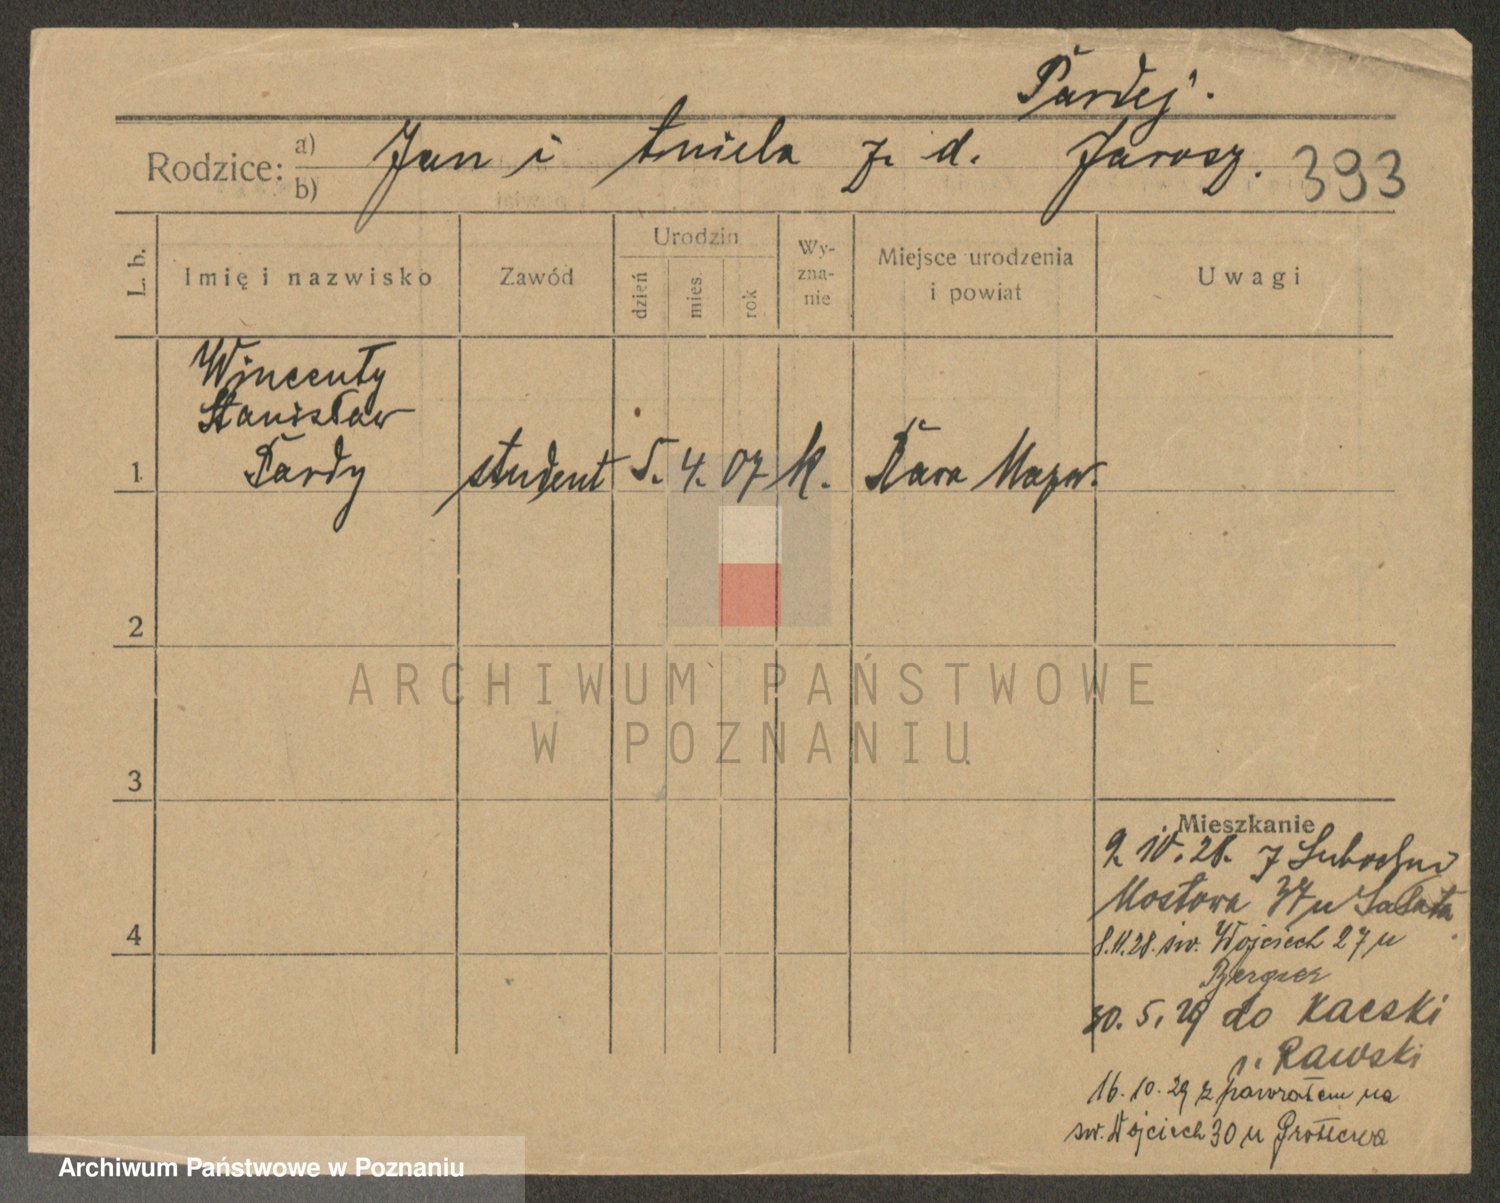 Pardej.
Rodzice: a) b) Jan i Aniela z. d. Jarosz. 393
L. b.
Imię i nazwisko
Zawód
Urodzin
dzień
mies.
rok
Wy-
zna-
nie
Miejsce urodzenia
i powiat
Uwagi
Wincenty
Stanisław
1 Pardy student 5. 4. 07 k. Rawa Mazow.
2
3
4
Mieszkanie
9. IV. 28. z
Mostowa 37 u Sałata
8.11.28. św. Wojciech 27 u
Berger
30. 5. 29 do
Rawski
16. 10. 29 z powrotem na
św. Wojciech 30 u
ARCHIWUM PAŃSTWOWE
W POZNANIU
Archiwum Państwowe w Poznaniu